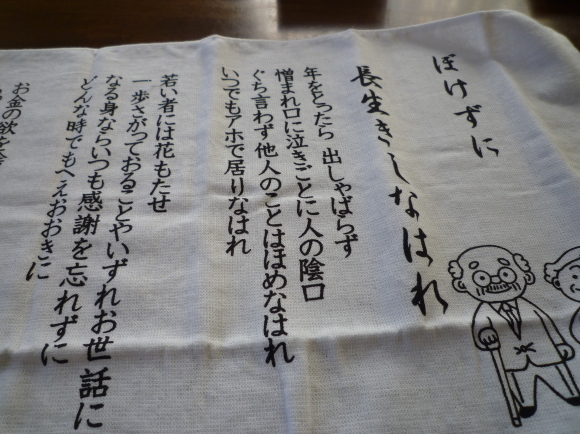 ぼけずに
長生きしなはれ
年をとったら 出しゃばらず
憎まれ口に泣きごとに人の陰口
ぐち言わず他人のことはほめなはれ
いつでもアホで居りなはれ
若い者には花もたせ
一歩さがっておることやいずれお世話に
なる身ならいつも感謝を忘れずに
どんな時でもへえおおきに
お金の欲を